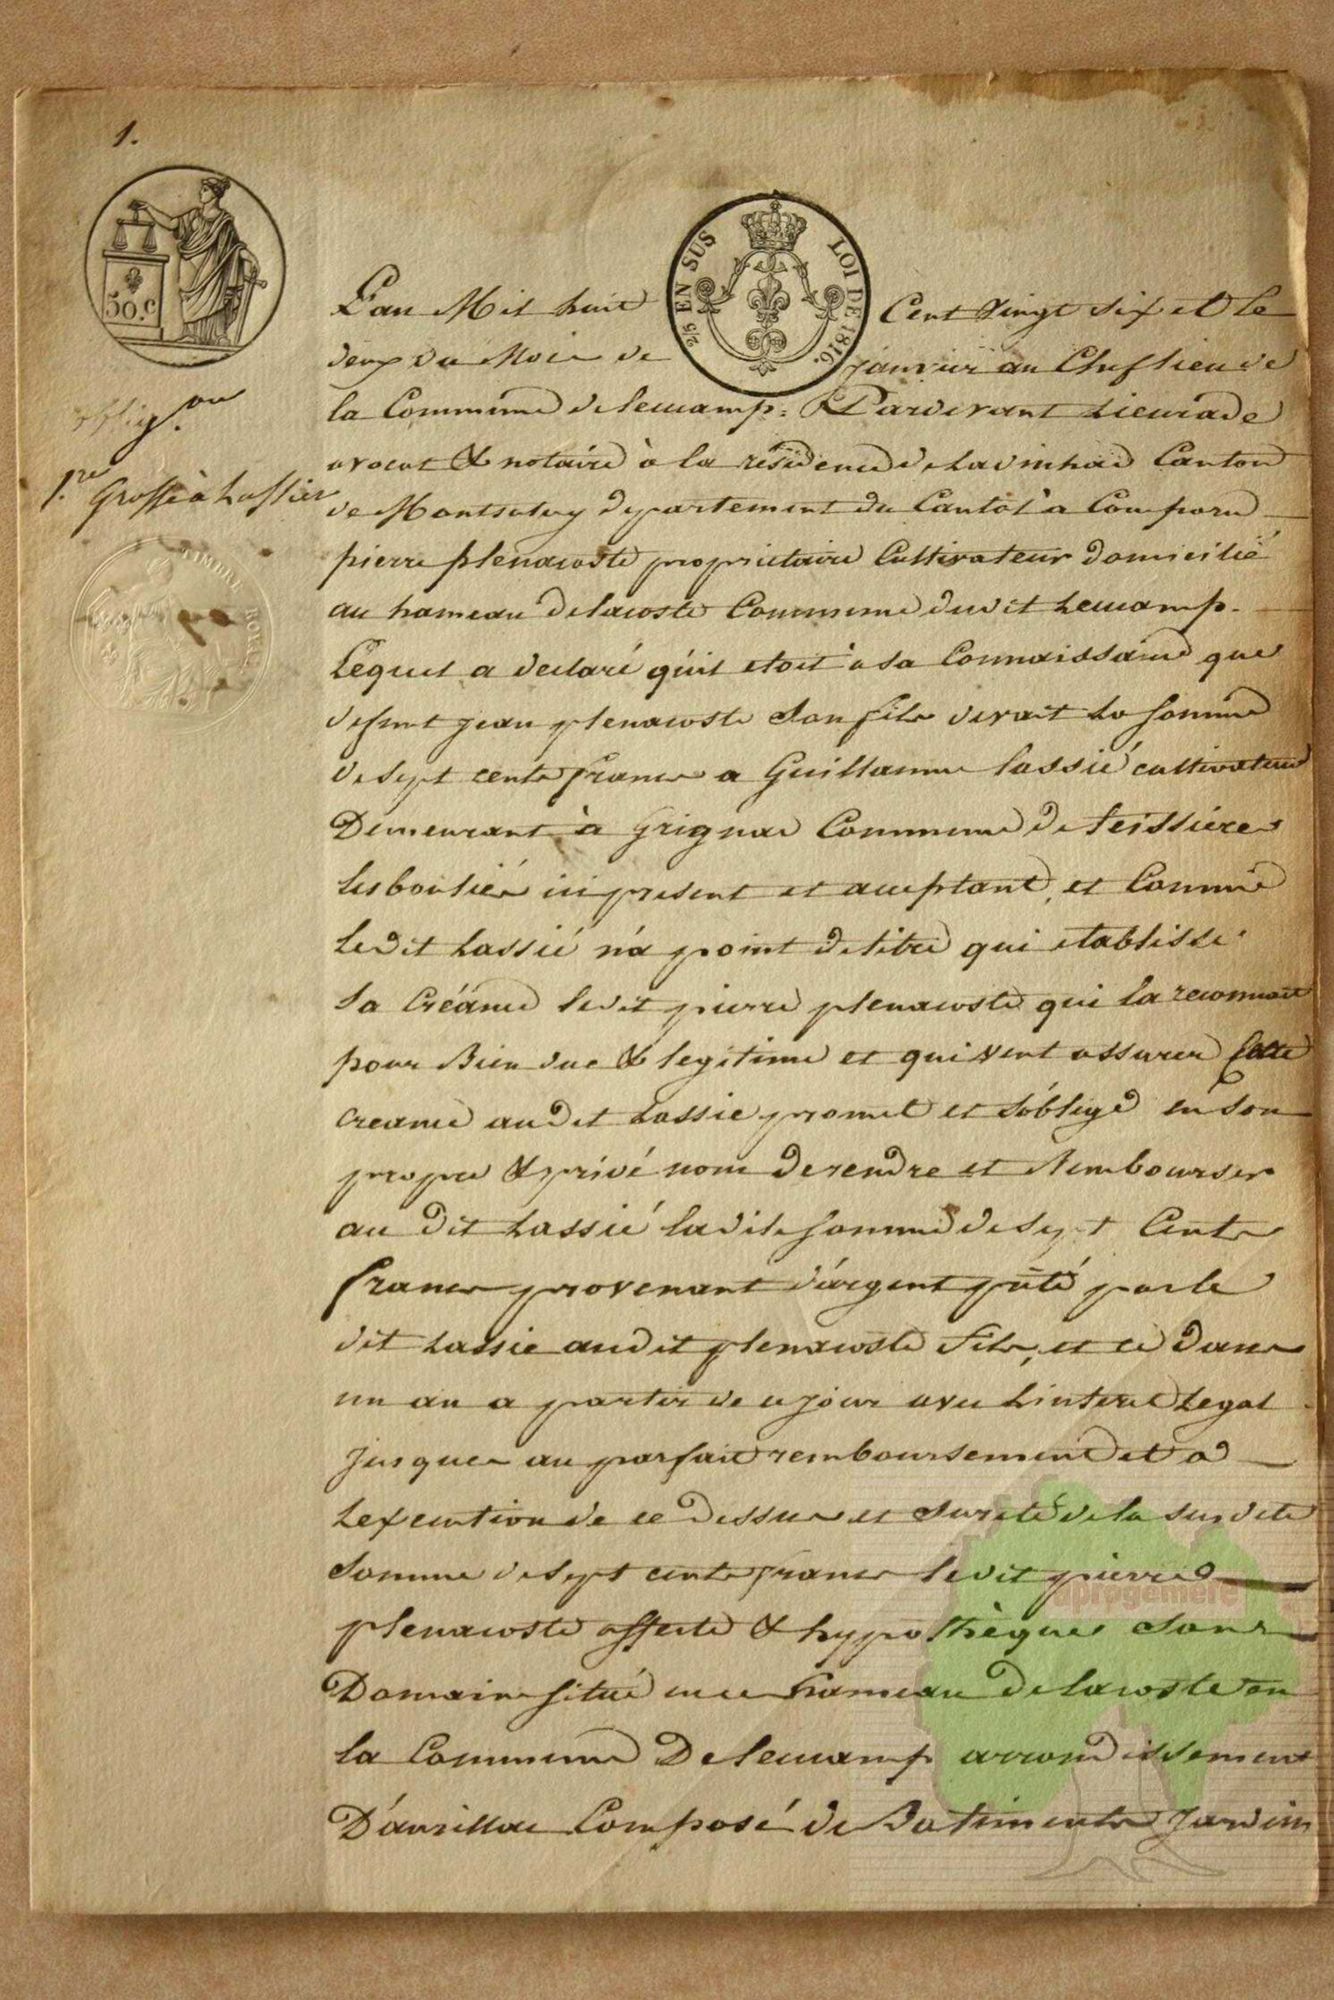 1.
50.c
2/5 EN SUS LOI DE 1816.
L'an Mil huit Cent vingt six et le
deux du Mois de janvier au Cheflieu de
la Commune de leucamp: Pardevant Lieurade
avocat & notaire à la résidence de Lavinhac Canton
de Montsalvy département du Cantal à Comparu
pierre plenacoste propriétaire Cultivateur domicilié
au hameau de lacoste Commune dudit Leucamp.
Lequel a declaré qu'il etoit à sa Connaissance que
defunt jean plenacoste Son fils devait la somme
de sept cents francs a Guillaume lassié cultivateur
Demeurant à Grignac Commune de teissières
lesbouliés ici present et acceptant, et Comme
ledit Lassié n'a point de titre qui etablisse
Sa Créance ledit pierre plenacoste qui la reconnait
pour Bien due & legitime et qui veut assurer Cette
creance audit Lassié promet et s'oblige en son
propre & privé nom de rendre et Rembourser
au Dit Lassié ladite somme de Sept Cents
francs provenant d'argent prété par le
dit Lassié audit plenacoste fils, et ce dans
un an a partir de ce jour avec L'interet Legal
jusques au parfait remboursement et a
L'execution de ce Dessus et Sureté de la susdite
Somme de sept cents francs ledit pierre
plenacoste affecte & hypothèque Son
Domaine situé en ce hameau de lacoste en
la Commune De leucamp arrondissement
D'aurillac Composé de Batiments jardin
oblig.on
1.re Grosse à Lassié
TIMBRE ROYAL
aprogemere